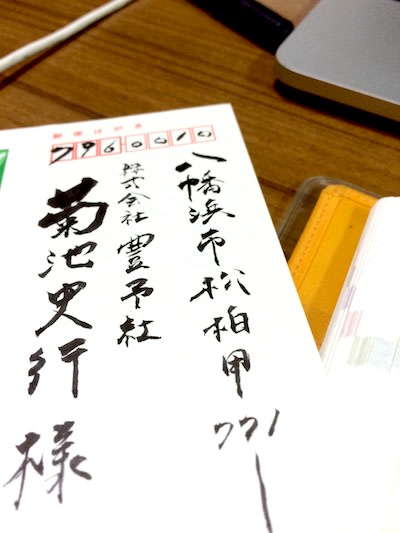 郵便はがき
7960010
八幡浜市松柏甲771
株式会社豊予社
菊池史行様